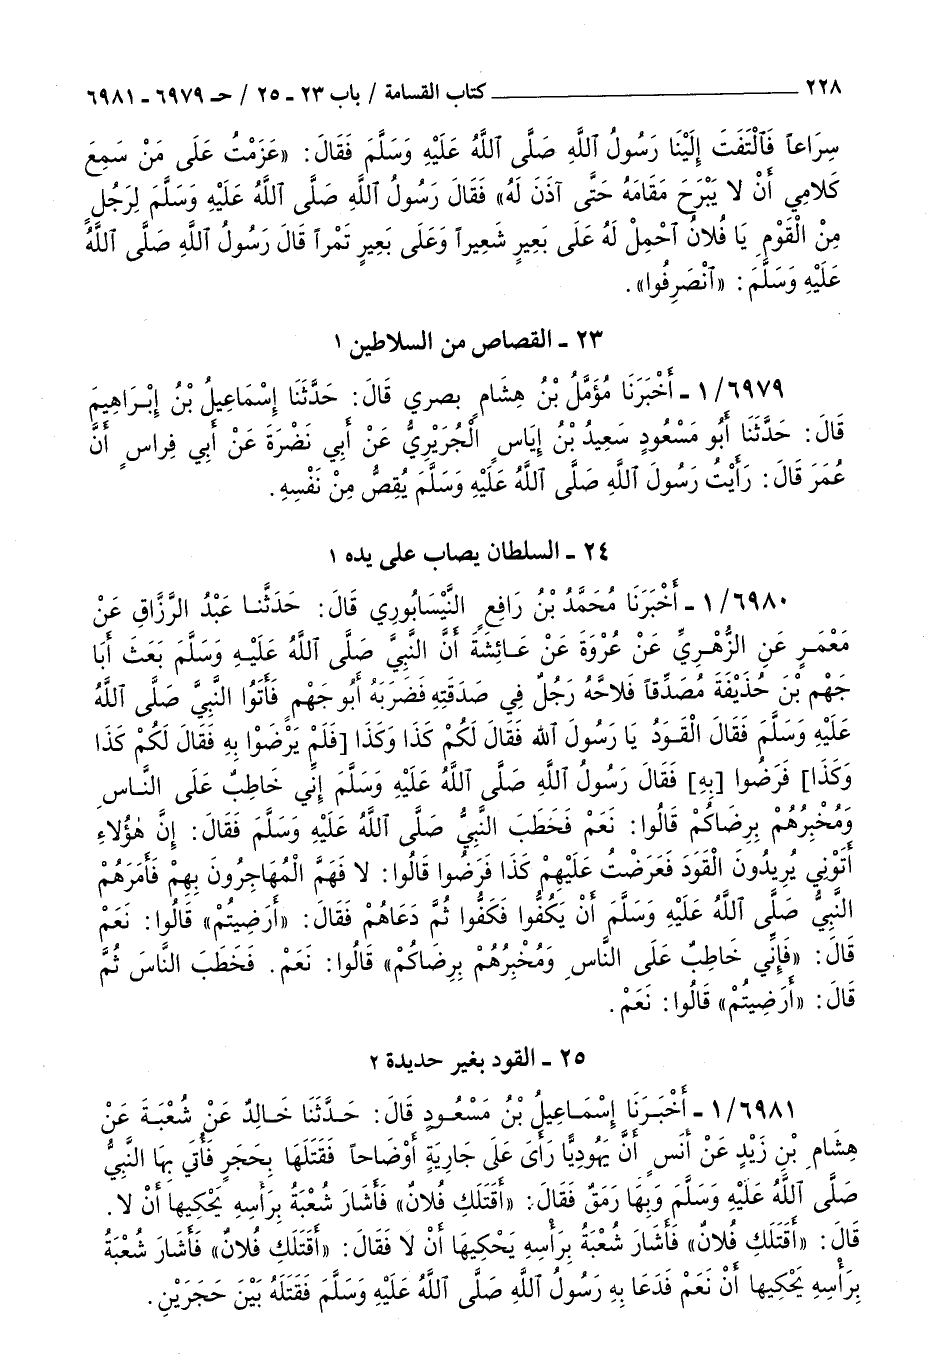 ٢٢٨ كتاب القسامة / باب ٢٣ ـ ٢٥ / حـ ٦٩٧٩ ـ ٦٩٨١
سِرَاعاً فَٱلْتَفَتَ إِلَيْنَا رَسُولُ ٱللَّهِ صَلَّى ٱللَّهُ عَلَيْهِ وَسَلَّمَ فَقَالَ: «عَزَمْتُ عَلَى مَنْ سَمِعَ
كَلَامِي أَنْ لا يَبْرَحَ مَقَامَهُ حَتَّى آذَنَ لَهُ» فَقَالَ رَسُولُ ٱللَّهِ صَلَّى ٱللَّهُ عَلَيْهِ وَسَلَّمَ لِرَجُلٍ
مِنْ الْقَوْمِ يَا فُلانُ ٱحْمِلْ لَهُ عَلَى بَعِيرٍ شَعِيراً وَعَلَى بَعِيرٍ تَمْراً قَالَ رَسُولُ ٱللَّهِ صَلَّى ٱللَّهُ
عَلَيْهِ وَسَلَّمَ: «ٱنْصَرِفُوا».
٢٣ ـ القصاص من السلاطين ١
١/٦٩٧٩ ـ أَخْبَرَنَا مُؤَمَّلُ بْنُ هِشَامٍ بصري قَالَ: حَدَّثَنَا إِسْمَاعِيلُ بْنُ إِبْرَاهِيمَ
قَالَ: حَدَّثَنَا أَبُو مَسْعُودٍ سَعِيدُ بْنُ إِيَاسٍ الْجُرَيْرِيُّ عَنْ أَبِي نَضْرَةَ عَنْ أَبِي فِرَاسٍ أَنَّ
عُمَرَ قَالَ: رَأَيْتُ رَسُولَ ٱللَّهِ صَلَّى ٱللَّهُ عَلَيْهِ وَسَلَّمَ يُقِصُّ مِنْ نَفْسِهِ.
٢٤ ـ السلطان يصاب على يده ١
١/٦٩٨٠ ـ أَخْبَرَنَا مُحَمَّدُ بْنُ رَافِعٍ النَّيْسَابُورِي قَالَ: حَدَثَّنا عَبْدُ الرَّزَّاقِ عَنْ
مَعْمَرٍ عَنِ الزُّهْرِيِّ عَنْ عُرْوَةَ عَنْ عَائِشَةَ أَنَّ النَّبِيَّ صَلَّى ٱللَّهُ عَلَيْهِ وَسَلَّمَ بَعَثَ أَبَا
جَهْمِ بْنَ حُذَيْفَةَ مُصَدِّقاً فَلاحَّهُ رَجُلٌ فِي صَدَقَتِهِ فَضَرَبَهُ أَبُو جَهْمٍ فَأَتَوُا النَّبِيَّ صَلَّى ٱللَّهُ
عَلَيْهِ وَسَلَّمَ فَقَالَ الْقَوَدُ يَا رَسُولَ ٱللهِ فَقَالَ لَكُمْ كَذَا وَكَذَا [فَلَمْ يَرْضَوْا بِهِ فَقَالَ لَكُمْ كَذَا
وَكَذَا] فَرَضُوا [بِهِ] فَقَالَ رَسُولُ ٱللَّهِ صَلَّى ٱللَّهُ عَلَيْهِ وَسَلَّمَ إِنِّي خَاطِبٌ عَلَى النَّاسِ
وَمُخْبِرُهُمْ بِرِضَاكُمْ قَالُوا: نَعَمْ فَخَطَبَ النَّبِيُّ صَلَّى ٱللَّهُ عَلَيْهِ وَسَلَّمَ فَقَالَ: إِنَّ هٰؤُلَاءِ
أَتَوْنِي يُرِيدُونَ الْقَوَدَ فَعَرَضْتُ عَلَيْهِمْ كَذَا فَرَضُوا قَالُوا: لا فَهَمَّ الْمُهَاجِرُونَ بِهِمْ فَأَمَرَهُمْ
النَّبِيُّ صَلَّى ٱللَّهُ عَلَيْهِ وَسَلَّمَ أَنْ يَكُفُّوا فَكَفُّوا ثُمَّ دَعَاهُمْ فَقَالَ: «أَرَضِيتُمْ» قَالُوا: نَعَمْ
قَالَ: «فَإِنِّي خَاطِبٌ عَلَى النَّاسِ وَمُخْبِرُهُمْ بِرِضَاكُمْ» قَالُوا: نَعَمْ. فَخَطَبَ النَّاسَ ثُمَّ
قَالَ: «أَرَضِيتُمْ» قَالُوا: نَعَمْ.
٢٥ ـ القود بغير حديدة ٢
١/٦٩٨١ ـ أَخْبَرَنَا إِسْمَاعِيلُ بْنُ مَسْعُودٍ قَالَ: حَدَّثَنَا خَالِدٌ عَنْ شُعْبَةَ عَنْ
هِشَامِ بْنِ زَيْدٍ عَنْ أَنَسٍ أَنَّ يَهُودِيًّا رَأَى عَلَى جَارِيَةٍ أَوْضَاحاً فَقَتَلَهَا بِحَجَرٍ فَأُتِيَ بِهَا النَّبِيُّ
صَلَّى ٱللَّهُ عَلَيْهِ وَسَلَّمَ وَبِهَا رَمَقٌ فَقَالَ: «أَقَتَلَكِ فُلانٌ» فَأَشَارَ شُعْبَةُ بِرَأسِهِ يَحْكِيها أَنْ لا.
قَالَ: «أَقَتَلَكِ فُلانٌ» فَأَشَارَ شُعْبَةُ بِرَأْسِهِ يَحْكِيهَا أَنْ لا فَقَالَ: «أَقَتَلَكِ فُلانٌ» فَأَشَارَ شُعْبَةُ
بِرَأْسِهِ يَحْكِيها أَنْ نَعَمْ فَدَعَا بِهِ رَسُولُ ٱللَّهِ صَلَّى ٱللَّهُ عَلَيْهِ وَسَلَّمَ فَقَتَلَهُ بَيْنَ حَجَرَيْنِ.